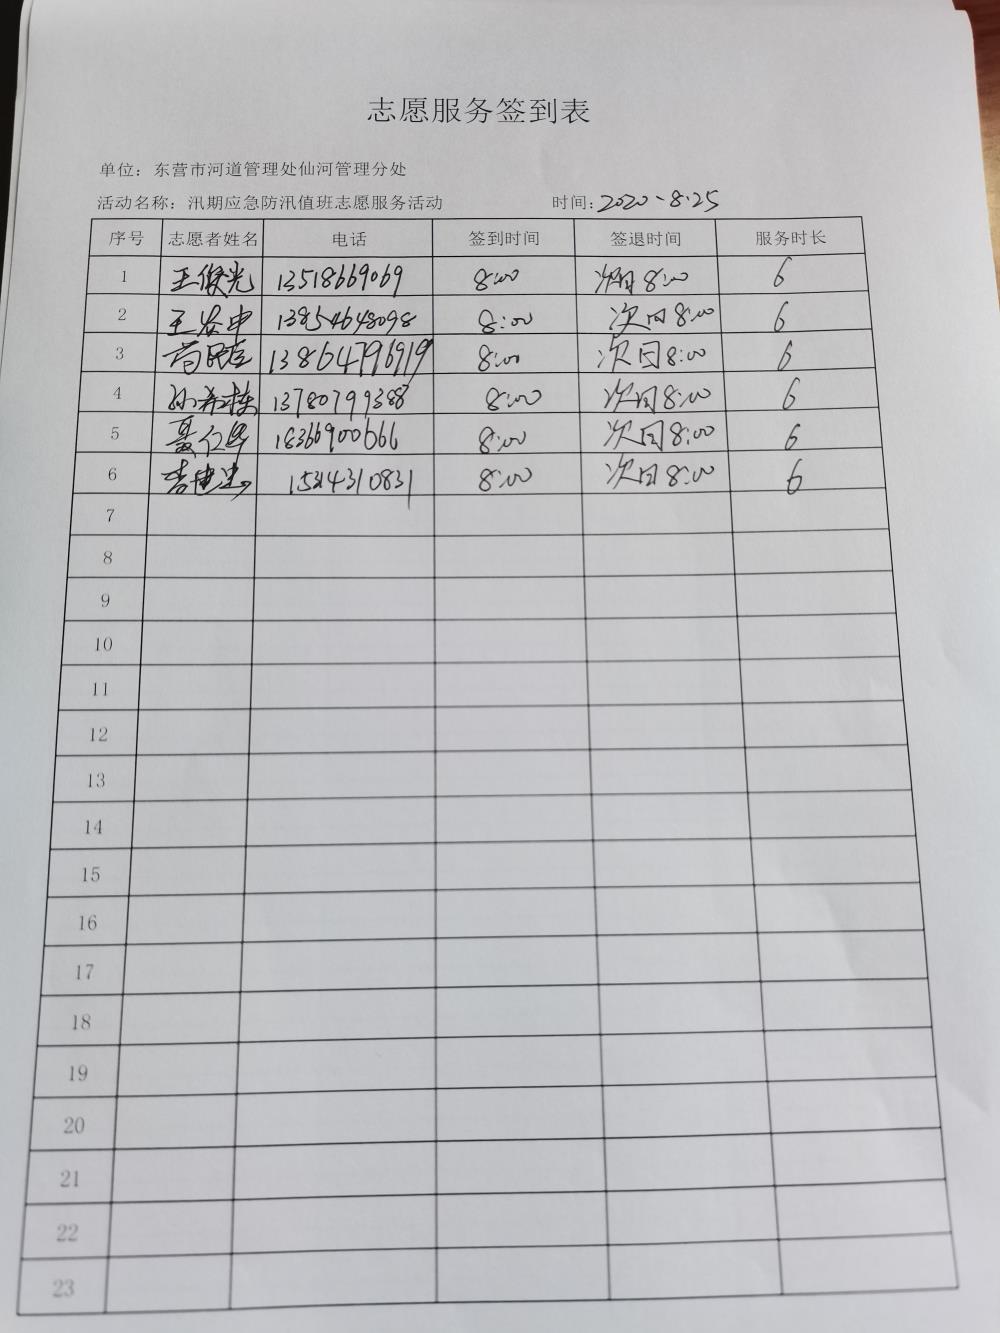 志愿服务签到表
单位：东营市河道管理处仙河管理分处
活动名称：汛期应急防汛值班志愿服务活动 时间：2020-8.25
序号 志愿者姓名 电话 签到时间 签退时间 服务时长
1 王俊光 13518669069 8:00 次日8:00 6
2 王 申 13854648098 8:00 次日8:00 6
3 13864796919 8:00 次日8:00 6
4 孙希栋 13780799388 8:00 次日8:00 6
5 聂仁华 18366900666 8:00 次日8:00 6
6 15314310831 8:00 次日8:00 6
7
8
9
10
11
12
13
14
15
16
17
18
19
20
21
22
23